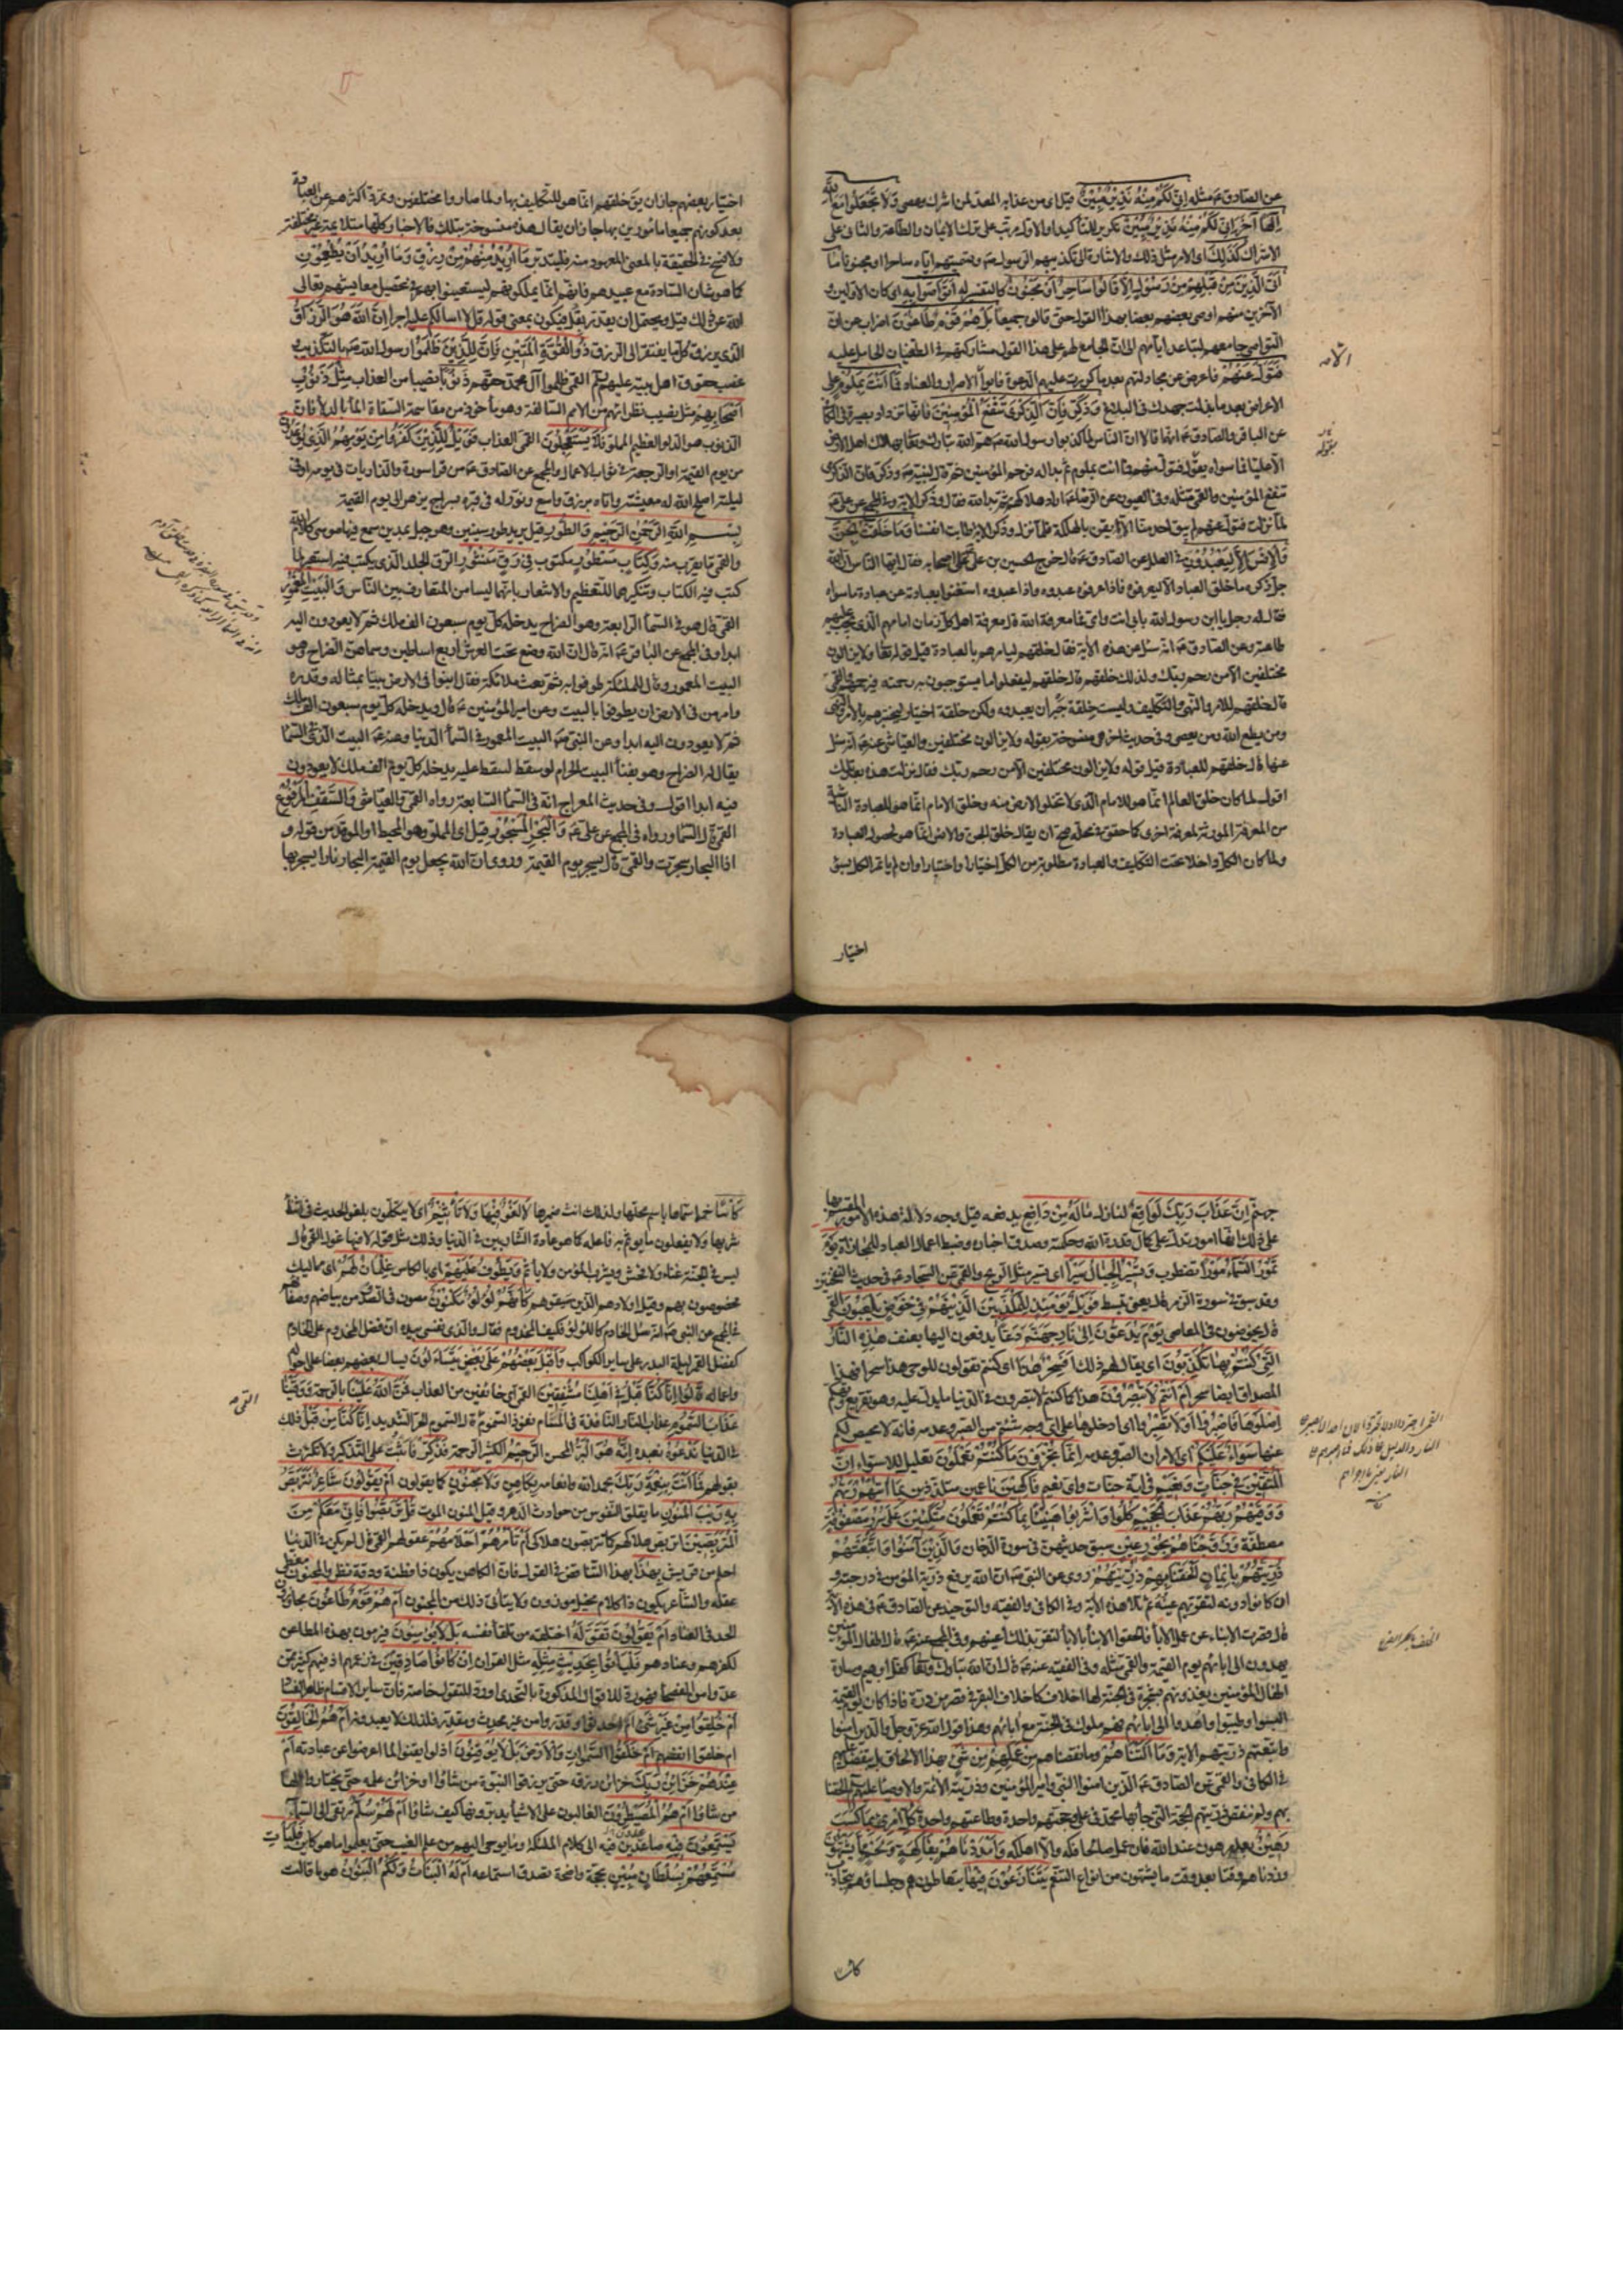 عن الصادق ع مثله إِنِّي لَكُمْ مِنْهُ نَذِيرٌ مُبِينٌ قيل اى من عذابه المعد لمن اشرك وعصى وَلَا تَجْعَلُوا مَعَ اللَّهِ
إِلَهًا آخَرَ إِنِّي لَكُمْ مِنْهُ نَذِيرٌ مُبِينٌ تكرير للتأكيد او الاول مرتب على ترك الايمان والطاعة والثانى على
الاشراك كَذَلِكَ اى الامر مثل ذلك والاشارة الى تكذيبهم الرسول وتسميتهم اياه ساحرا او مجنونا مَا
أَتَى الَّذِينَ مِنْ قَبْلِهِمْ مِنْ رَسُولٍ إِلَّا قَالُوا سَاحِرٌ أَوْ مَجْنُونٌ كالتفسير له أَتَوَاصَوْا بِهِ اى كان الاولين و
الآخرين منهم اوصى بعضهم بعضا بهذا القول حتى قالوه جميعا بَلْ هُمْ قَوْمٌ طَاغُونَ اضراب عن ان
التواصى جامعهم لتباعد ايامهم الى ان الجامع لهم على هذا القول مشاركتهم فى الطغيان الحامل عليه
فَتَوَلَّ عَنْهُمْ فاعرض عن مجادلتهم بعد ما كررت عليهم الدعوة فابوا الا الاصرار والعناد فَمَا أَنْتَ بِمَلُومٍ على
الاعراض بعد ما بذلت جهدك فى البلاغ وَذَكِّرْ فَإِنَّ الذِّكْرَى تَنْفَعُ الْمُؤْمِنِينَ فانها تزداد بصيرة فى الكافى
عن الباقر والصادق ع انهما قالا ان الناس لما كذبوا رسول الله ص هم الله تبارك وتعالى بهلاك اهل الارض
الا عليا فما سواه بقوله فتول عنهم فما انت بملوم ثم بدا له فرحم المؤمنين ثم قال لنبيه ص وذكر فان الذكرى
تنفع المؤمنين والقمى مثله وفى العيون عن الرضا ع اراد هلاكهم ثم بدا لله فقال وذكر الاية وفى المجمع عن على ع
لما نزلت فتول عنهم لم يبق احد منا الا ايقن بالهلكة فلما نزل وذكر الاية طابت انفسنا وَمَا خَلَقْتُ الْجِنَّ
وَالْإِنْسَ إِلَّا لِيَعْبُدُونِ فى العلل عن الصادق ع قال خرج الحسين بن على على اصحابه فقال ايها الناس ان الله
جل ذكره ما خلق العباد الا ليعرفوه فاذا عرفوه عبدوه واذا عبدوه استغنوا بعبادته عن عبادة ما سواه
فقال له رجل يا ابن رسول الله بابى انت وامى فما معرفة الله قال معرفة اهل كل زمان امامهم الذى يجب عليهم
طاعته وعن الصادق ع انه سئل عن هذه الاية فقال خلقهم ليأمرهم بالعبادة قيل قوله تعالى ولا يزالون
مختلفين الا من رحم ربك ولذلك خلقهم قال خلقهم ليفعلوا ما يستوجبون به رحمته فيرحمهم والقمى
قال خلقهم للامر والنهى والتكليف وليست خلقة جبر ان يعبدوه ولكن خلقة اختيار ليختبرهم بالامر والنهى
ومن يطع الله ومن يعصى وفى حديث اخر هى منسوخة بقوله ولا يزالون مختلفين والعياشى عنه ع انه سئل
عنها قال خلقهم للعبادة قيل قوله ولا يزالون مختلفين الا من رحم ربك فقال نزلت هذه بعد تلك
اقول لما كان خلق العالم انما هو للامام الذى لا تخلو الارض منه وخلق الامام انما هو للعبادة الناشئة
من المعرفة المورثة لمعرفة اخرى كما حقق فى محله صح ان يقال خلق الجن والانس انما هو لحصول العبادة
ولما كان الكل داخلا تحت التكليف والعبادة مطلوبة من الكل اختيارا واختبارا وان لم يأتم الكل بسوء
اختيار
الآمه
اختيار بعضهم جاز ان يق خلقهم انما هو للتكليف بها ولما صاروا مختلفين وتمرد اكثرهم عن العبادة
بعد كونهم جميعا مأمورين بها جاز ان يقال هذه منسوخة بتلك فالاخبار كلها متلائمة غير مختلفة
ولا نسخ فى الحقيقة بالمعنى المعهود منه فليتدبر مَا أُرِيدُ مِنْهُمْ مِنْ رِزْقٍ وَمَا أُرِيدُ أَنْ يُطْعِمُونِ
كما هو شان السادة مع عبيدهم فانهم انما يملكونهم ليستعينوا بهم فى تحصيل معايشهم تعالى
الله عن ذلك قيل ويحتمل ان يقدر بقل فيكون بمعنى قوله قل لا اسالكم عليه اجرا إِنَّ اللَّهَ هُوَ الرَّزَّاقُ
الذى يرزق كل ما يفتقر الى الرزق ذُو الْقُوَّةِ الْمَتِينُ فَإِنَّ لِلَّذِينَ ظَلَمُوا رسول الله ص بالتكذيب و
غصب حقوق اهل بيته عليهم السلم القمى ظلموا آل محمد حقهم ذَنُوبًا نصيبا من العذاب مِثْلَ ذَنُوبِ
أَصْحَابِهِمْ مثل نصيب نظرائهم من الامم السالفة وهو مأخوذ من مقاسمة السقاة الماء بالدلاء فان
الذنوب هو الدلو العظيم المملو فَلَا يَسْتَعْجِلُونِ القمى العذاب فَوَيْلٌ لِلَّذِينَ كَفَرُوا مِنْ يَوْمِهِمُ الَّذِي يُوعَدُونَ
من يوم القيمة او الرجعة فى ثواب الاعمال والمجمع عن الصادق ع من قرأ سورة والذاريات فى يومه او فى
ليلته اصلح الله له معيشته واتاه برزق واسع ونور له فى قبره بسراج يزهر الى يوم القيمة
بِسْمِ اللَّهِ الرَّحْمَنِ الرَّحِيمِ وَالطُّورِ قيل يريد طور سينين وهو جبل بمدين سمع فيه موسى كلام الله
والقمى ما يقرب منه وَكِتَابٍ مَسْطُورٍ مكتوب فِي رَقٍّ مَنْشُورٍ الرق الجلد الذى يكتب فيه استعير لما
كتب فيه الكتاب وتنكيرهما للتعظيم والاشعار بانهما ليسا من المتعارف بين الناس وَالْبَيْتِ الْمَعْمُورِ
القمى قال هو فى السمآء الرابعة وهو الضراح يدخله كل يوم سبعون الف ملك ثم لا يعودون اليه
ابدا وفى المجمع عن الباقر ع انه قال ان الله وضع تحت العرش اربع اساطين وسماهن الضراح وهو
البيت المعمور وقال للملئكة طوفوا به ثم بعث ملائكة فقال ابنوا فى الارض بيتا بمثاله وقدره
وامر من فى الارض ان يطوفوا بالبيت وعن امير المؤمنين ع قال ويدخله كل يوم سبعون الف ملك
ثم لا يعودون اليه ابدا وعن النبى ص البيت المعمور فى السمآء الدنيا وعنه ع البيت الذى فى السمآء
يقال له الضراح وهو بفنآء البيت الحرام لو سقط لسقط عليه يدخله كل يوم الف ملك لا يعودون
فيه ابدا اقول وفى حديث المعراج انه فى السمآء السابعة رواه القمى والعياشى وَالسَّقْفِ الْمَرْفُوعِ
القمى قال السمآء ورواه فى المجمع عن على ع وَالْبَحْرِ الْمَسْجُورِ قيل اى المملو وهو المحيط او الموقد من قوله و
اذا البحار سجرت والقمى قال يسجر يوم القيمة وروى ان الله يجعل يوم القيمة البحار نارا يسجر بها
جهنم إِنَّ عَذَابَ رَبِّكَ لَوَاقِعٌ لنازل مَا لَهُ مِنْ دَافِعٍ يدفعه قيل وجه دلالة هذه الامور المقسم بها
على ذلك انها امور تدل على كمال قدرة الله وحكمته وصدق اخباره وضبط اعمال العباد للمجازاة يَوْمَ
تَمُورُ السَّمَاءُ مَوْرًا تضطرب وَتَسِيرُ الْجِبَالُ سَيْرًا اى تسير مثل الريح والقمى عن السجاد ع فى حديث النفختين
وقد سبق فى سورة الزمر قال يعنى تبسط فَوَيْلٌ يَوْمَئِذٍ لِلْمُكَذِّبِينَ الَّذِينَ هُمْ فِي خَوْضٍ يَلْعَبُونَ القمى
قال يخوضون فى المعاصى يَوْمَ يُدَعُّونَ إِلَى نَارِ جَهَنَّمَ دَعًّا يدفعون اليها بعنف هَذِهِ النَّارُ
الَّتِي كُنْتُمْ بِهَا تُكَذِّبُونَ اى يقال لهم ذلك أَفَسِحْرٌ هَذَا اى كنتم تقولون للوحى هذا سحر افهذا
المصداق ايضا سحر أَمْ أَنْتُمْ لَا تُبْصِرُونَ هذا كما كنتم لا تبصرون فى الدنيا ما يدل عليه وهو تقريع وتهكم
اصْلَوْهَا فَاصْبِرُوا أَوْ لَا تَصْبِرُوا اى ادخلوها على اى وجه شئتم من الصبر وعدمه فانه لا محيص لكم
عنها سَوَاءٌ عَلَيْكُمْ اى الامران الصبر وعدمه إِنَّمَا تُجْزَوْنَ مَا كُنْتُمْ تَعْمَلُونَ تعليل للاستواء إِنَّ
الْمُتَّقِينَ فِي جَنَّاتٍ وَنَعِيمٍ فى اية جنات واى نعيم فَاكِهِينَ ناعمين متلذذين بِمَا آتَاهُمْ رَبُّهُمْ
وَوَقَاهُمْ رَبُّهُمْ عَذَابَ الْجَحِيمِ كُلُوا وَاشْرَبُوا هَنِيئًا بِمَا كُنْتُمْ تَعْمَلُونَ مُتَّكِئِينَ عَلَى سُرُرٍ مَصْفُوفَةٍ
مصطفة وَزَوَّجْنَاهُمْ بِحُورٍ عِينٍ سبق حديثهن فى سورة الدخان وَالَّذِينَ آمَنُوا وَاتَّبَعَتْهُمْ
ذُرِّيَّتُهُمْ بِإِيمَانٍ أَلْحَقْنَا بِهِمْ ذُرِّيَّتَهُمْ روى عن النبى ص ان الله يرفع ذرية المؤمن فى درجته و
ان كانوا دونه لتقر بهم عينه ثم تلا هذه الاية وفى الكافى والفقيه والتوحيد عن الصادق ع فى هذه الاية
قال قصرت الابناء عن عمل الآباء فالحقوا الابناء بالآباء لتقر بذلك اعينهم وفى المجمع عنه ع قال اطفال المؤمنين
يهدون الى ابائهم يوم القيمة والقمى مثله وفى الفقيه عنه ع قال ان الله تبارك وتعالى كفل ابرهيم وسارة
اطفال المؤمنين يغذونهم بشجرة فى الجنة لها اخلاف كاخلاف البقر فى قصر من درة فاذا كان يوم القيمة
البسوا وطيبوا واهدوا الى ابائهم فهم ملوك فى الجنة مع ابائهم وهذا قول الله عز وجل والذين امنوا
واتبعتهم ذريتهم الاية وَمَا أَلَتْنَاهُمْ وما نقصناهم مِنْ عَمَلِهِمْ مِنْ شَيْءٍ بهذا الالحاق بل يتفضل عليهم
فى الكافى والقمى عن الصادق ع الذين امنوا النبى وامير المؤمنين وذريته الائمة والاوصياء عليهم السلم الحقنا
بهم ولم ننقص ذريتهم الحجة التى جاء بها محمد فى على وحجتهم واحدة وطاعتهم واحدة كُلُّ امْرِئٍ بِمَا كَسَبَ
رَهِينٌ بعمله مرهون عند الله فان عمل صالحا فكه والا اهلكه وَأَمْدَدْنَاهُمْ بِفَاكِهَةٍ وَلَحْمٍ مِمَّا يَشْتَهُونَ
وزدناهم وقتا بعد وقت ما يشتهون من انواع التنعم يَتَنَازَعُونَ فِيهَا يتعاطون هم وجلساؤهم بتجاذب
كأسا
كَأْسًا خمرا سماها باسم محلها ولذلك انث ضميرها لَا لَغْوٌ فِيهَا وَلَا تَأْثِيمٌ اى لا يتكلمون بلغو الحديث فى اثناء
شربها ولا يفعلون ما يؤثم به فاعله كما هو عادة الشاربين فى الدنيا وذلك مثل قوله لا فيها غول القمى قال
ليس فى الجنة غناء ولا فحش ويشرب المؤمن ولا يأثم وَيَطُوفُ عَلَيْهِمْ اى بالكأس غِلْمَانٌ لَهُمْ اى مماليك
مخصوصون بهم وقيل اولادهم الذين سبقوهم كَأَنَّهُمْ لُؤْلُؤٌ مَكْنُونٌ مصون فى الصدف من بياضهم وصفائهم
فى المجمع عن النبى ص انه سئل الخادم كاللؤلؤ فكيف المخدوم فقال والذى نفسى بيده ان فضل المخدوم على الخادم
كفضل القمر ليلة البدر على ساير الكواكب وَأَقْبَلَ بَعْضُهُمْ عَلَى بَعْضٍ يَتَسَاءَلُونَ يسال بعضهم بعضا عن احواله
واعماله قَالُوا إِنَّا كُنَّا قَبْلُ فِي أَهْلِنَا مُشْفِقِينَ القمى اى خائفين من العذاب فَمَنَّ اللَّهُ عَلَيْنَا بالرحمة وَوَقَانَا
عَذَابَ السَّمُومِ عذاب النار النافذة فى المسام نفوذ السموم القمى قال السموم الحر الشديد إِنَّا كُنَّا مِنْ قَبْلُ ذلك
فى الدنيا نَدْعُوهُ نعبده إِنَّهُ هُوَ الْبَرُّ المحسن الرَّحِيمُ الكثير الرحمة فَذَكِّرْ فاثبت على التذكير ولا تكترث
بقولهم فَمَا أَنْتَ بِنِعْمَةِ رَبِّكَ بحمد الله وانعامه بِكَاهِنٍ وَلَا مَجْنُونٍ كما يقولون أَمْ يَقُولُونَ شَاعِرٌ نَتَرَبَّصُ
بِهِ رَيْبَ الْمَنُونِ ما يقلق النفوس من حوادث الدهر وقيل المنون الموت قُلْ تَرَبَّصُوا فَإِنِّي مَعَكُمْ مِنَ
الْمُتَرَبِّصِينَ اتربص هلاككم كما تتربصون هلاكى أَمْ تَأْمُرُهُمْ أَحْلَامُهُمْ عقولهم القمى قال لم يكن فى الدنيا
احلم من قريش بِهَذَا بهذا التناقض فى القول فان الكاهن يكون ذا فطنة ودقة نظر والمجنون مغطى
عقله والشاعر يكون ذا كلام مخيل موزون ولا يتأتى ذلك من المجنون أَمْ هُمْ قَوْمٌ طَاغُونَ مجاوزون
الحد فى العناد أَمْ يَقُولُونَ تَقَوَّلَهُ اختلقه من تلقاء نفسه بَلْ لَا يُؤْمِنُونَ فيرمون بهذه المطاعن
لكفرهم وعنادهم فَلْيَأْتُوا بِحَدِيثٍ مِثْلِهِ مثل القران إِنْ كَانُوا صَادِقِينَ فى زعمهم اذ فيهم كثير ممن
عدوا من الفصحاء فهو رد للاقوال المذكورة بالتحدى او رد للتقول خاصة فان ساير الاقسام ظاهر الفساد
أَمْ خُلِقُوا مِنْ غَيْرِ شَيْءٍ ام احدثوا وقدروا من غير محدث ومقدر فلذلك لا يعبدونه أَمْ هُمُ الْخَالِقُونَ
ام خلقوا انفسهم أَمْ خَلَقُوا السَّمَوَاتِ وَالْأَرْضَ بَلْ لَا يُوقِنُونَ اذ لو ايقنوا لما اعرضوا عن عبادته أَمْ
عِنْدَهُمْ خَزَائِنُ رَبِّكَ خزائن رزقه حتى يرزقوا النبوة من شاؤا او خزائن علمه حتى يختاروا لها
من شاؤا أَمْ هُمُ الْمُصَيْطِرُونَ الغالبون على الاشياء يدبرونها كيف شاؤا أَمْ لَهُمْ سُلَّمٌ مرتقى الى السماء
يَسْتَمِعُونَ فِيهِ صاعدين فيه الى كلام الملئكة وما يوحى اليهم من علم الغيب حتى يعلموا ما هو كائن فَلْيَأْتِ
مُسْتَمِعُهُمْ بِسُلْطَانٍ مُبِينٍ بحجة واضحة تصدق استماعه أَمْ لَهُ الْبَنَاتُ وَلَكُمُ الْبَنُونَ هو ما قالت
القمى